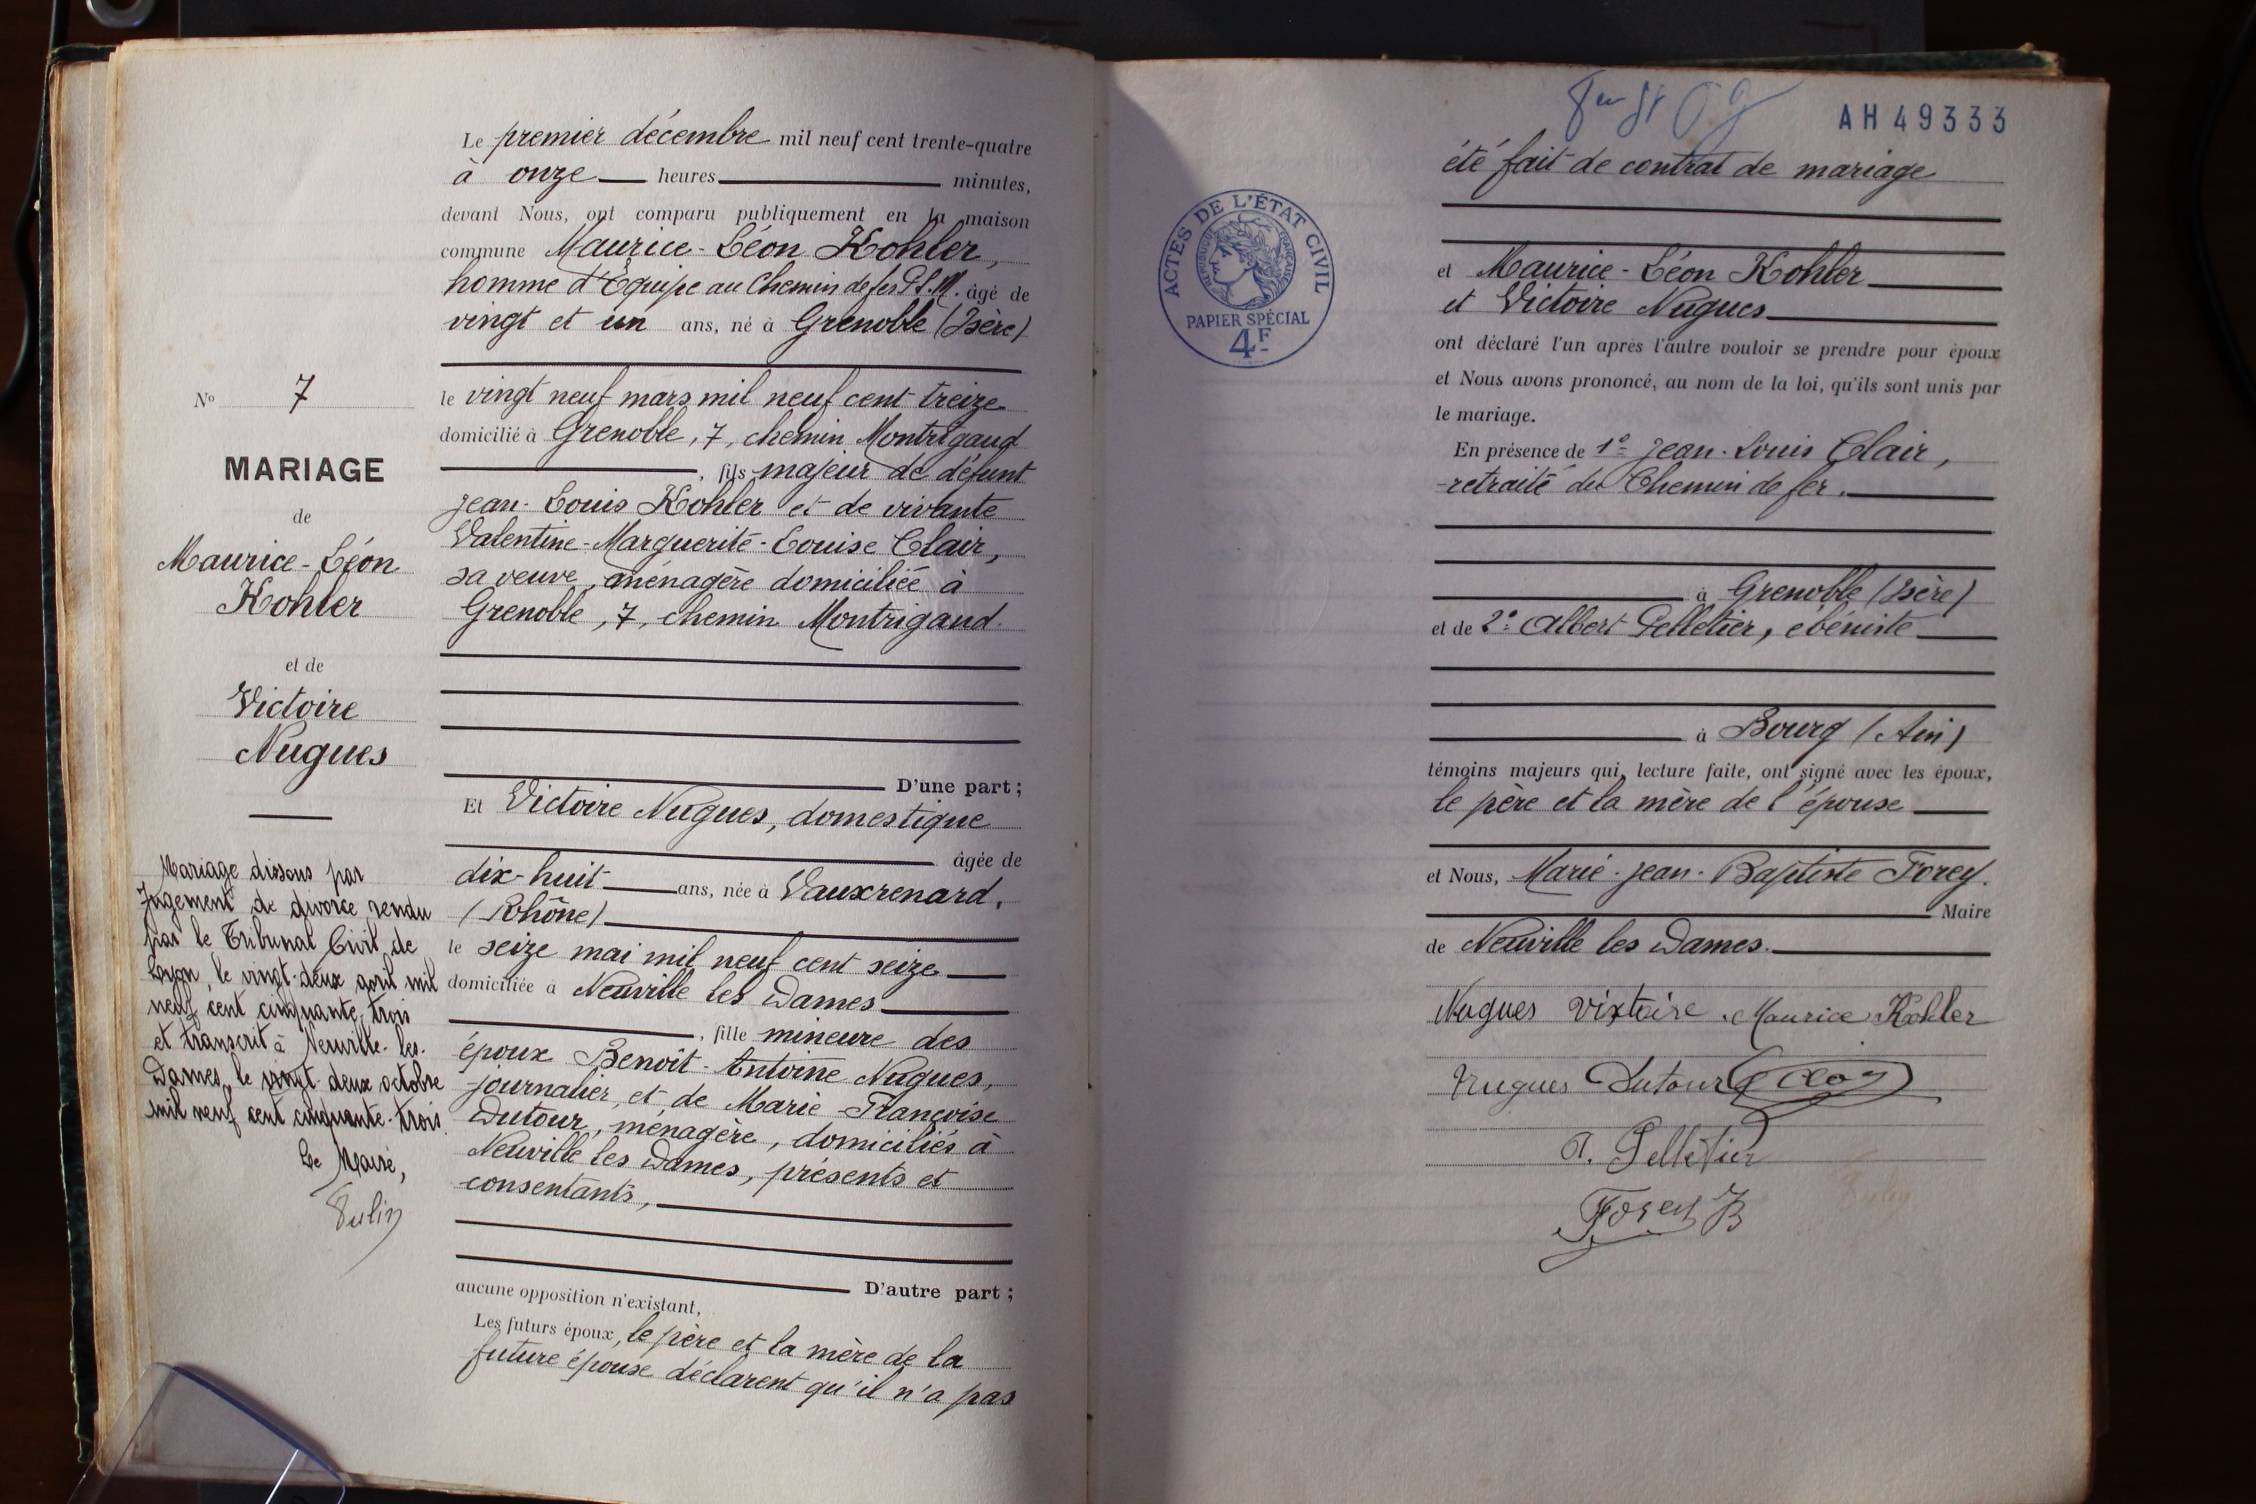 Le premier décembre mil neuf cent trente-quatre
à onze heures minutes,
devant Nous, ont comparu publiquement en la maison
commune Maurice-Léon Kohler,
homme d'Equipe au Chemin de fer P.L.M. âgé de
vingt et un ans, né à Grenoble (Isère)
No 7
le vingt neuf mars mil neuf cent treize
domicilié à Grenoble, 7, chemin Montrigaud
MARIAGE
, fils majeur de défunt
de
Jean-Louis Kohler et de vivante
Maurice-Léon
Valentine-Marguerite-Louise Clair,
Kohler
sa veuve, ménagère domiciliée à
Grenoble, 7, chemin Montrigaud.
et de
Victoire
Nugues
D'une part ;
Et Victoire Nugues, domestique
âgée de
dix-huit ans, née à Vauxrenard,
(Rhône)
le seize mai mil neuf cent seize
domiciliée à Neuville les Dames
, fille mineure des
époux Benoît-Antoine Nugues,
journalier, et de Marie-Françoise
Dutour, ménagère, domiciliés à
Neuville les Dames, présents et
consentants,
D'autre part ;
aucune opposition n'existant,
Les futurs époux, le père et la mère de la
future épouse déclarent qu'il n'a pas
Mariage dissous par
Jugement de divorce rendu
par le Tribunal Civil de
Lyon, le vingt-deux avril mil
neuf cent cinquante-trois
et transcrit à Neuville-les-
Dames, le vingt-deux octobre
mil neuf cent cinquante-trois.
Le Maire,
AH 49333
été fait de contrat de mariage
ACTES DE L'ÉTAT CIVIL
RÉPUBLIQUE FRANÇAISE
PAPIER SPÉCIAL
4F
et Maurice-Léon Kohler
et Victoire Nugues
ont déclaré l'un après l'autre vouloir se prendre pour époux
et Nous avons prononcé, au nom de la loi, qu'ils sont unis par
le mariage.
En présence de 1° Jean-Louis Clair,
retraité du Chemin de fer.
à Grenoble (Isère)
et de 2° Albert Pelletier, ebéniste
à Bourg (Ain)
témoins majeurs qui, lecture faite, ont signé avec les époux,
le père et la mère de l'épouse
et Nous, Marie-Jean-Baptiste Forey.
Maire
de Neuville les Dames.
Nugues Vixtoire Maurice Kohler
Nugues Dutour
A. Pelletier
Forey B